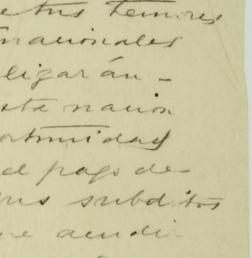 tus temores
nacionales
ligarán -
este nacion
ortunidad
el pago de
sus subditos
ue acudi